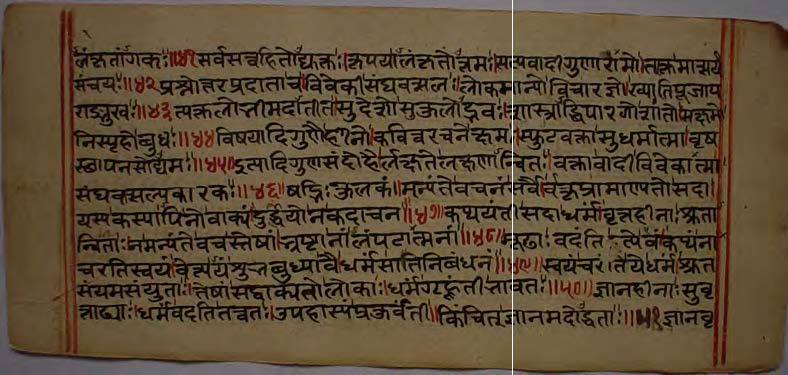 लंकृतांगकः ॥४१ सर्वसत्त्वहितोद्युक्तः कृपयालंकृतोत्तमः सत्यवादी गुणारामो
संचयः ॥४२ प्रश्नोत्तरप्रदाता च विवेकी संघवत्सलः लोकमान्यो विचारज्ञो ख्यातिपूजाप
राङ्मुखः ॥४३ त्यक्तलोभीमदातीत सुदेशो सुकुलोद्भवः शास्त्राब्धिपारगो शांतो सक्षमो
निस्पृहो बुधः ॥४४ विषयादिगुणैर्हीनो कवित्वरचनेक्षमः स्फुटवक्ता सुधर्मात्मा वृष
स्थापनसोद्यमः ॥४५ इत्यादिगुणसंदोहैर्लक्षितै लक्षणान्वितः वक्ता वादी विवेकात्मा
संघवात्सल्यकारकः ॥४६ षड्भिः कुलकं मन्यंते वचनं सर्वे वक्तृप्रामाण्यतो सदा
यस्य कस्यापिनो वाक्यं दुर्द्धियो न कदाचन ॥४७ कथयंती सदा धर्मं वृत्तहीनाः श्रुता
न्विताः न मन्यंते वचस्तेषां भ्रष्टानां लंपटात्मनां ॥४८ वदंति
चरति स्वयं धर्मसातिनिबंधनं ॥४९ स्वयं चरंति ये धर्मं श्रुत
संयमसंयुताः तेषां सद्वाक्यतो लोकाः धर्मं गृह्णंती भावतः ॥५० ज्ञानहीनाः सुवृ
त्ताढ्याः धर्मं वदति तत्त्वतः उपहास्यं प्रकुर्वंती किंचित् ज्ञानमदोद्धताः ॥५१ ज्ञानवृ